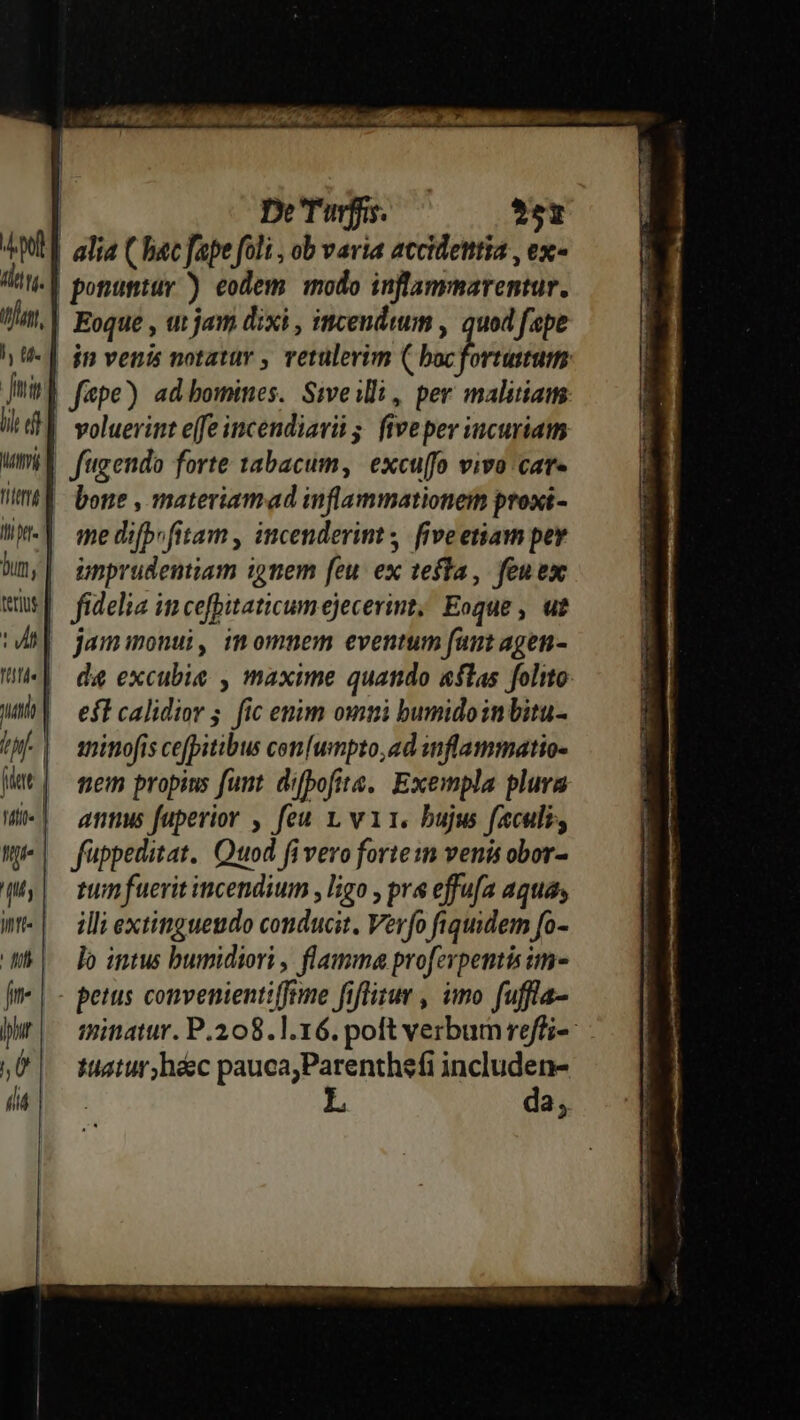 De Turffis. 251
alia ( hæc sæpe soli, ob varia accidentia, ex-
ponuntur ) eodem modo inflammarentur.
Eoque, ut jam dixi, incendium, quod sæpe
in venis notatur, retulerim ( hoc fortuitum
sæpe) ad homines. Sive illi, per malitiam
voluerint esse incendiarii; sive per incuriam
sugendo forte tabacum, excusso vivo car-
bone, materiam ad inflammationem proxi-
me dispositam, incenderint; sive etiam per
imprudentiam ignem seu ex testa, seu ex
fidelia in cespitaticum ejecerint. Eoque, ut
jam monui, in omnem eventum sunt agen-
dæ excubiæ, maxime quando æstas solito
est calidior; sic enim omni humido in bitu-
minosis cespitibus consumpto, ad inflammatio-
nem propius sunt dispositæ. Exempla plura
annus superior, seu LVII. hujus sæculi,
suppeditat. Quod si vero forte in venis obor-
tum fuerit incendium, ligo, præ effusa aqua,
illi extinguendo conducit. Verso siquidem so-
lo intus humidiori, flamma proserpentis im-
petus convenientissime sistitur, imo suffla-
minatur. P.208.l.16. post verbum resti-
tuatur, hæc pauca, Parenthesi includen-
L da,